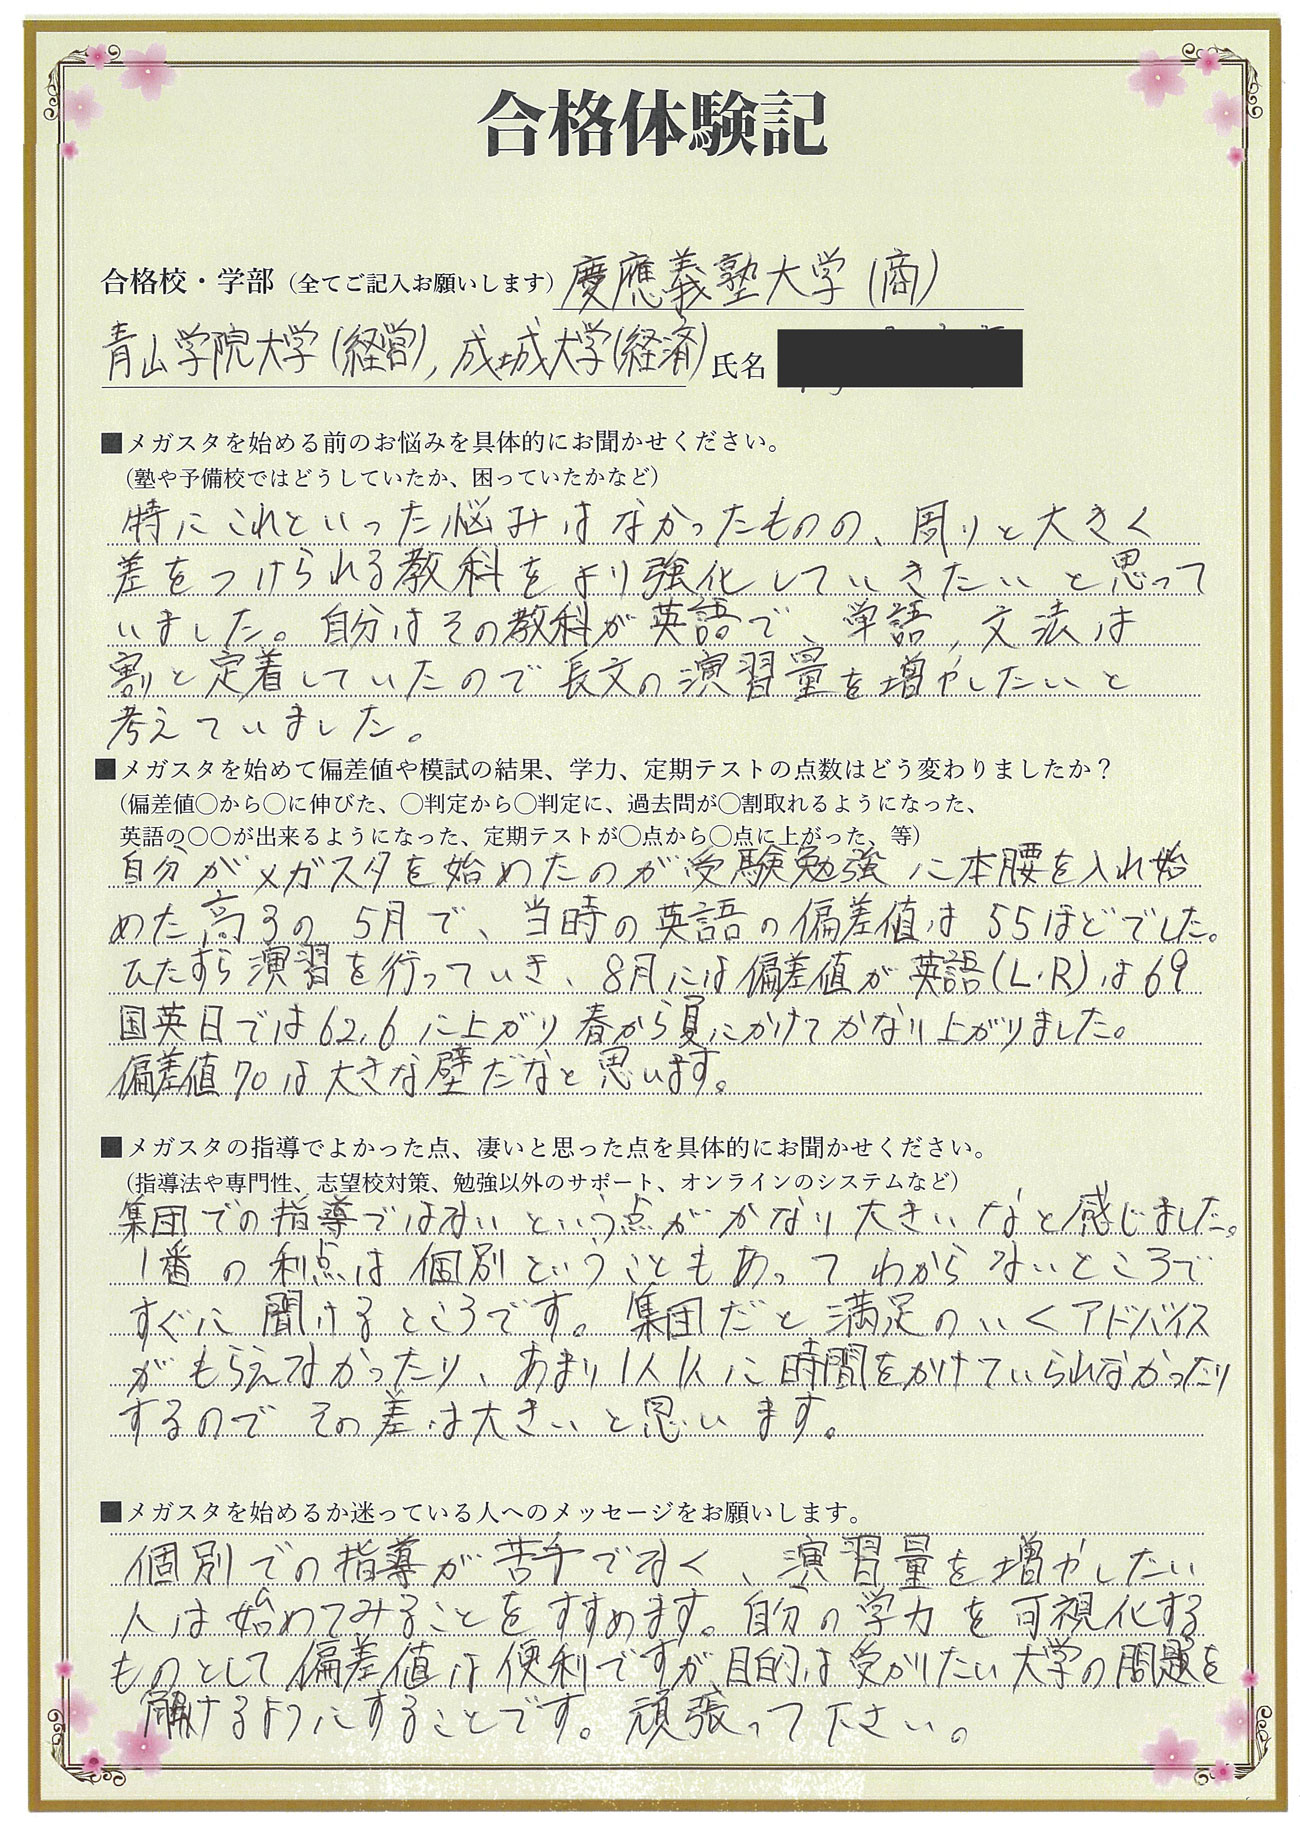 合格体験記
合格校・学部（全てご記入お願いします）慶應義塾大学(商)
青山学院大学(経営), 成城大学(経済) 氏名
■メガスタを始める前のお悩みを具体的にお聞かせください。
（塾や予備校ではどうしていたか、困っていたかなど）
特にこれといった悩みはなかったものの、周りと大きく
差をつけられる教科をより強化していきたいと思って
いました。自分はその教科が英語で、単語, 文法は
割と定着していたので長文の演習量を増やしたいと
考えていました。
■メガスタを始めて偏差値や模試の結果、学力、定期テストの点数はどう変わりましたか？
（偏差値〇から〇に伸びた、〇判定から〇判定に、過去問が〇割取れるようになった、
英語の〇〇が出来るようになった、定期テストが〇点から〇点に上がった、等）
自分がメガスタを始めたのが受験勉強に本腰を入れ始
めた高3の5月で、当時の英語の偏差値は55ほどでした。
ひたすら演習を行っていき、8月には偏差値が英語(L・R)は69
国英日では62.6に上がり春から夏にかけてかなり上がりました。
偏差値70は大きな壁だなと思います。
■メガスタの指導でよかった点、凄いと思った点を具体的にお聞かせください。
（指導法や専門性、志望校対策、勉強以外のサポート、オンラインのシステムなど）
集団での指導ではないという点がかなり大きいなと感じました。
1番の利点は個別ということもあってわからないところで
すぐに聞けるところです。集団だと満足のいくアドバイス
がもらえなかったり、あまり1人1人に時間をかけていられなかったり
するのでその差は大きいと思います。
■メガスタを始めるか迷っている人へのメッセージをお願いします。
個別での指導が苦手でなく、演習量を増やしたい
人は始めてみることをすすめます。自分の学力を可視化する
ものとして偏差値は便利ですが、目的は受かりたい大学の問題を
解けるようにすることです。頑張って下さい。